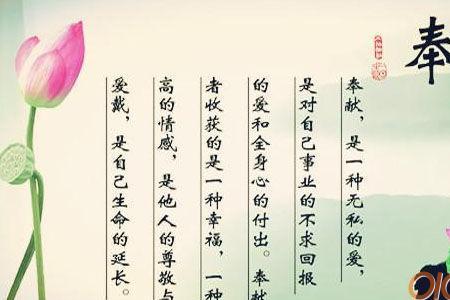 奉
奉献，是一种无私的爱，
是对自己事业的不求回报
的爱和全身心的付出。奉献
者收获的是一种幸福，一种
高的情感，是他人的尊敬与
爱戴，是自己生命的延长。